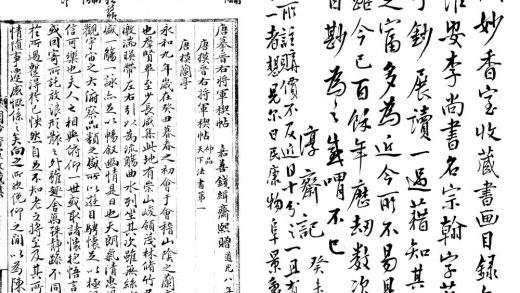 妙香室收藏書画目錄
淮安李尚書名宗翰字
手鈔展讀一過藉知其
之富多為近今所不易見
離今已百餘年歷劫數次
日斟為之嘅喟不已
淳齋記 癸未
所註購價不及近日十分之一且有
一者想見尔日民康物阜景象
唐摹晉右將軍禊帖 嘉善錢緝齋熙贈 道光八年
唐摹晉右將軍禊帖 神品 法書第一
唐模蘭亭
永和九年歲在癸丑暮春之初會于會稽山陰之蘭亭
也羣賢畢至少長咸集此地有崇山峻領茂林脩竹
激湍暎帶左右引以為流觴曲水列坐其次雖無絲
盛一觴一詠亦足以暢叙幽情是日也天朗氣清惠
觀宇宙之大俯察品類之盛所以遊目騁懷足以極
信可樂也夫人之相與俯仰一世或取諸懷抱悟言
或因寄所託放浪形骸之外雖趣舍萬殊靜躁不同
於所遇蹔得於己怏然自足不知老之將至及其所
情隨事遷感慨係之矣向之所欣俛仰之閒以為陳